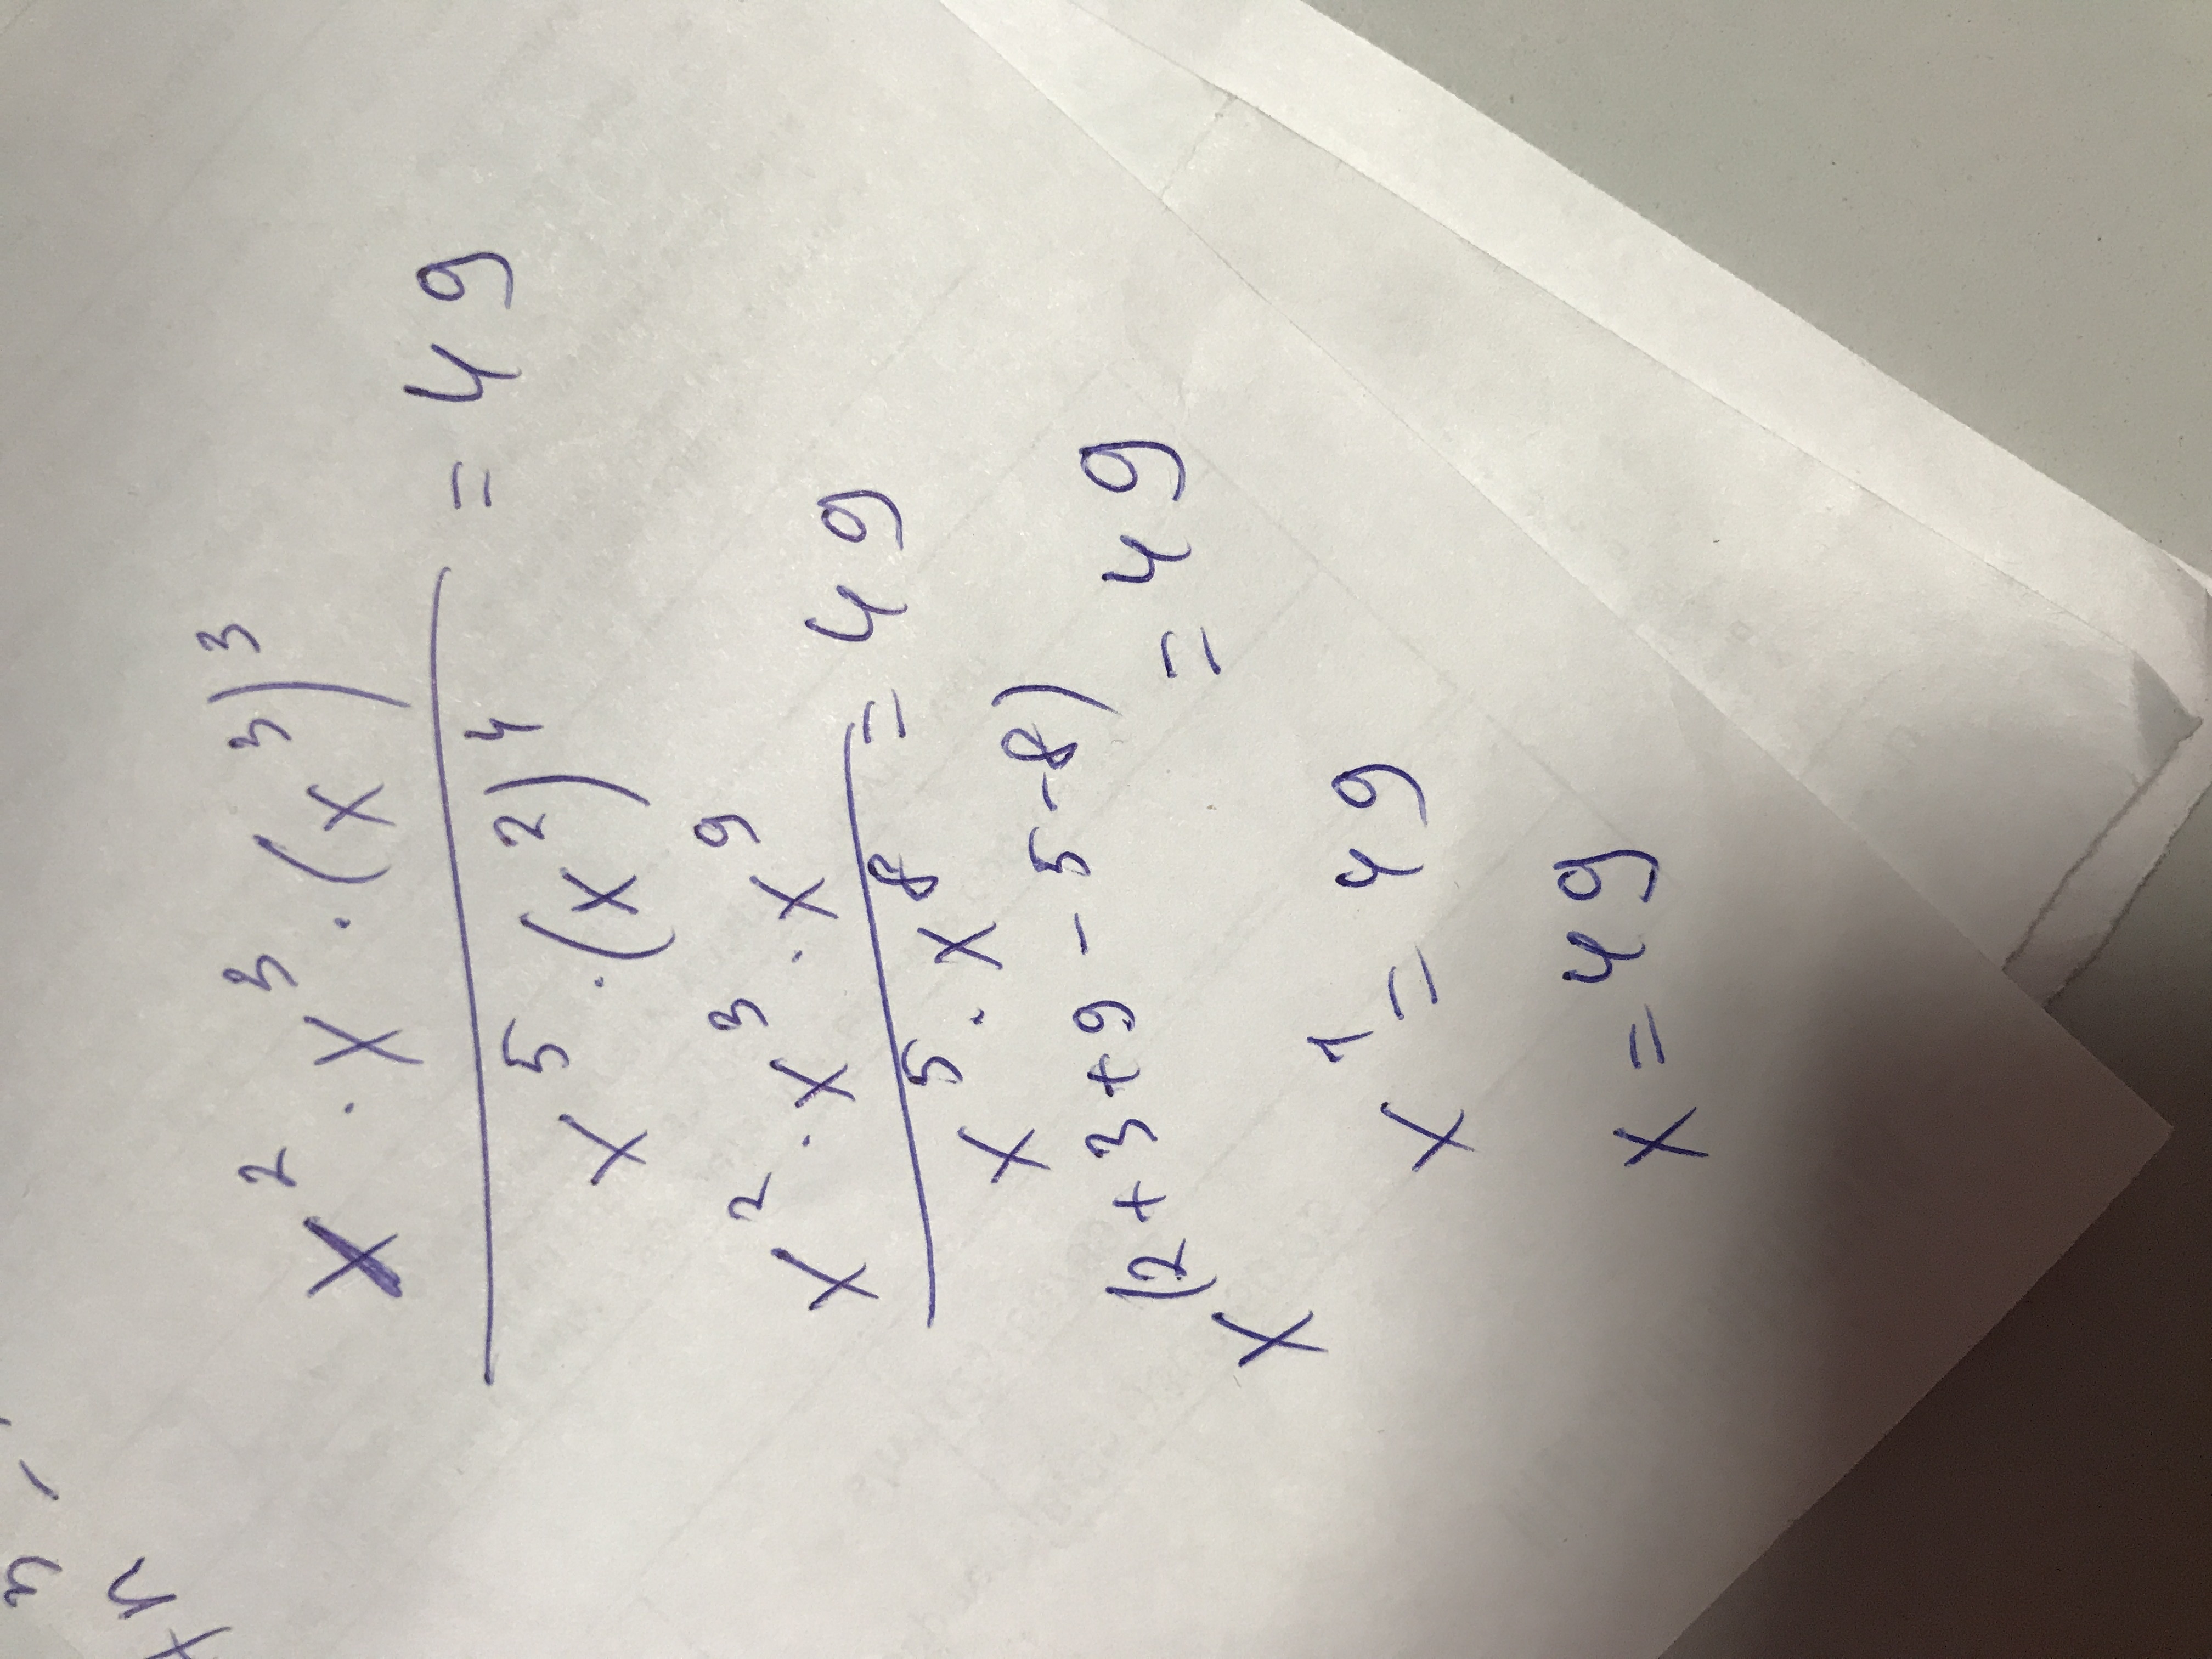 x² · x³ · (x³)³ / x⁵ · (x²)⁴ = 49
x² · x³ · x⁹ / x⁵ · x⁸ = 49
x^(2+3+9-5-8) = 49
x¹ = 49
x = 49